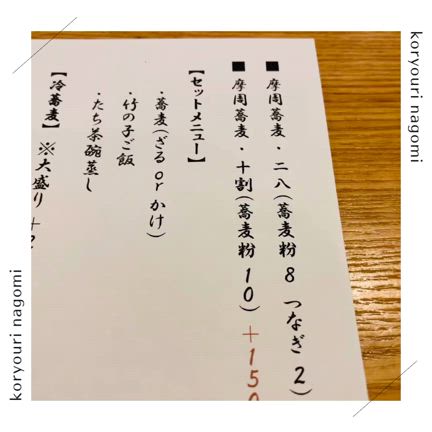 koryouri nagomi
■摩周蕎麦・二八(蕎麦粉8 つなぎ2)
■摩周蕎麦・十割(蕎麦粉10) +150
【セットメニュー】
・蕎麦(ざる or かけ)
・竹の子ご飯
・たち茶碗蒸し
【冷蕎麦】 ※大盛り +2
koryouri nagomi